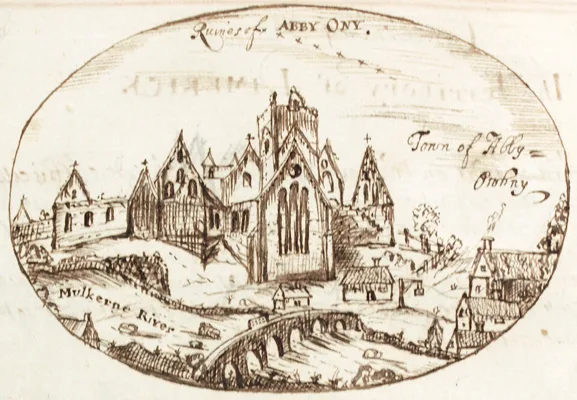 Ruines of ABBY ONY.
Town of Abby =
Owhny
Mulkerne River